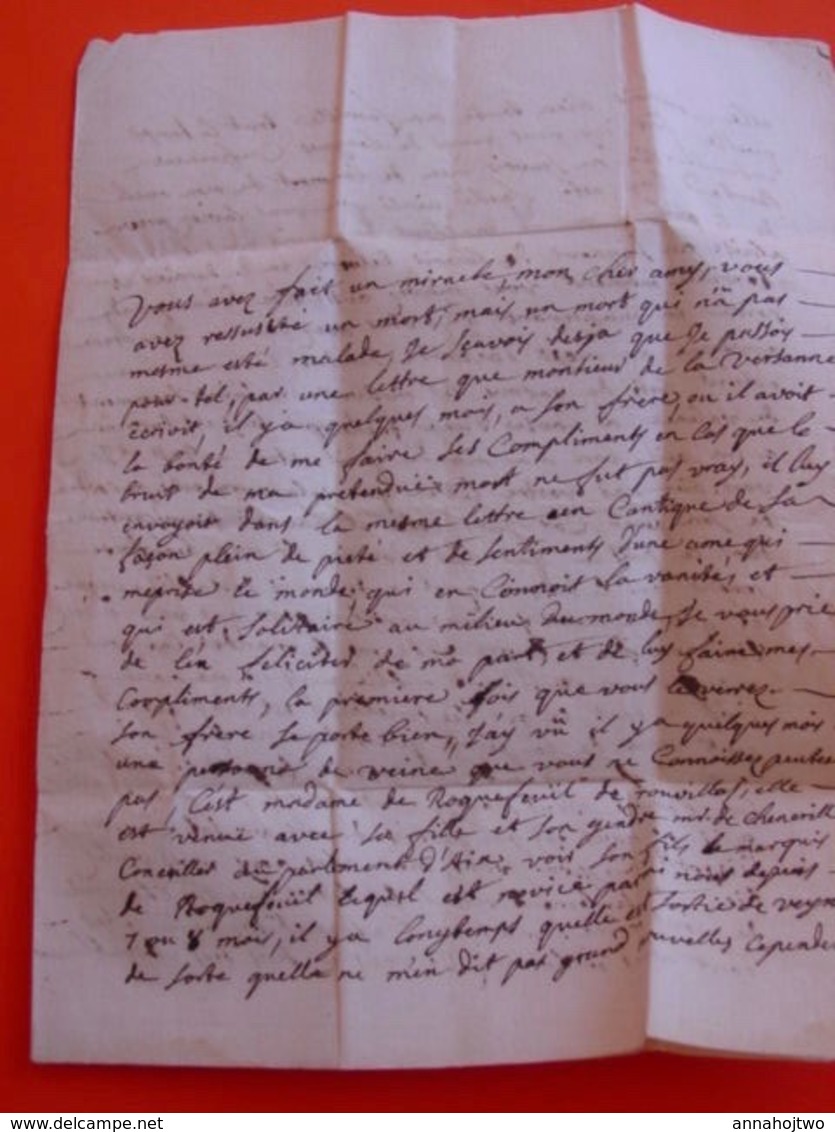 Vous avez fait un miracle, mon cher amy, vous
avez ressussité un mort, mais un mort qui n'a pas
mesme esté malade, Je sçavois desja que Je passois
pour tel, par une lettre que monsieur de la Versanne
écrivit, il y a quelques mois, a son frère, ou il avoit
la bonté de me faire ses Compliments en Cas que le
bruit de ma pretendüe mort ne fut pas vray, il luy
envoyoit dans la mesme lettre un Cantique de sa
façon plein de pieté et de sentiments d'une ame qui
meprise le monde, qui en Connoit la vanités, et
qui est solitaire au milieu du monde, Je vous prie
de l'en feliciter de ma part, et de luy faire mes
Compliments, la premiere fois que vous le verrez.
son frere se porte bien, J'ay vû il y a quelques mois
une personne de veine que vous ne Connoissez peutes
pas, C'est madame de Roquefeuil de rouvillas, elle
est venüe avec sa fille et son gendre mr. de chenerill
Conseiller du parlement d'Aix, voir son fils le marquis
de Roquefeüil lequel est novice parmi nous depuis
7 ou 8 mois, il y a longtemps quelle est sortie de veyn
de sorte quella ne m'en dit pas grand nouvelles Cepende
annahojtwo